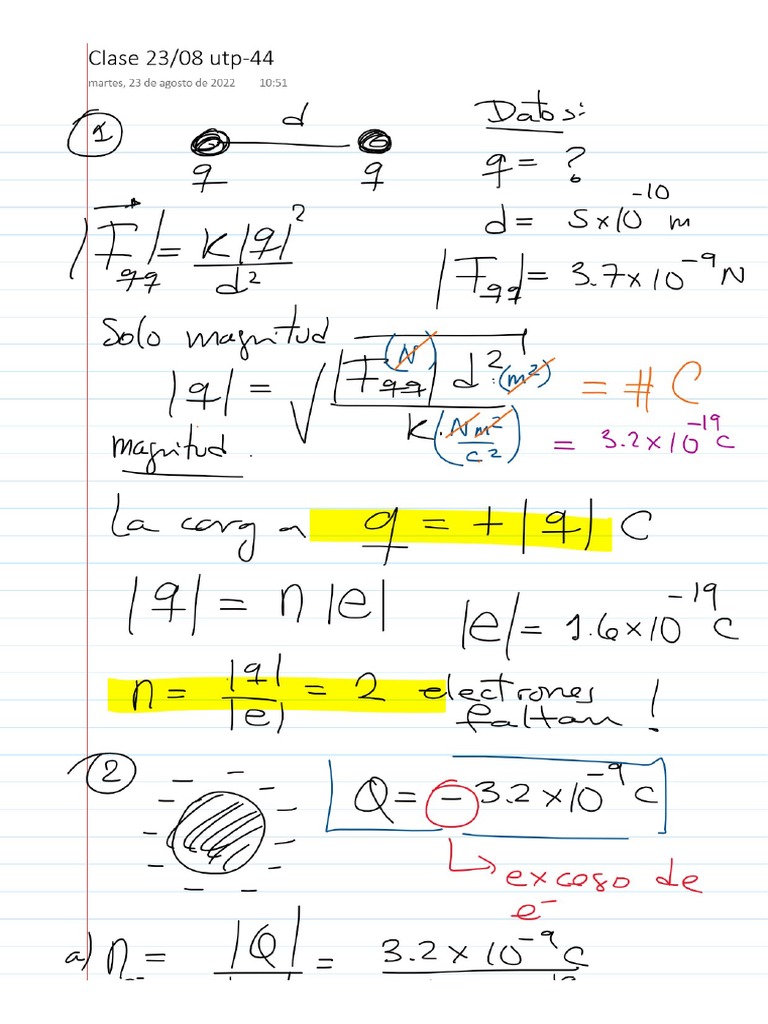 Clase 23/08 utp-44
martes, 23 de agosto de 2022 10:51
1
d
q q
Datos:
q = ?
d = 5x10^-10 m
|F_qq| = K|q|^2 / d^2
|F_qq| = 3.7x10^-9 N
Solo magnitud
|q| = √(|F_qq|(N) d^2 (m^2) / K (Nm^2/C^2)) = # C
= 3.2x10^-19 C
magnitud.
La carga q = + |q| C
|q| = n |e| |e| = 1.6x10^-19 C
n = |q| / |e| = 2 electrones
faltan!
2
Q = - 3.2x10^-9 C
exceso de
e^-
a) n = |Q| = 3.2x10^-9 C